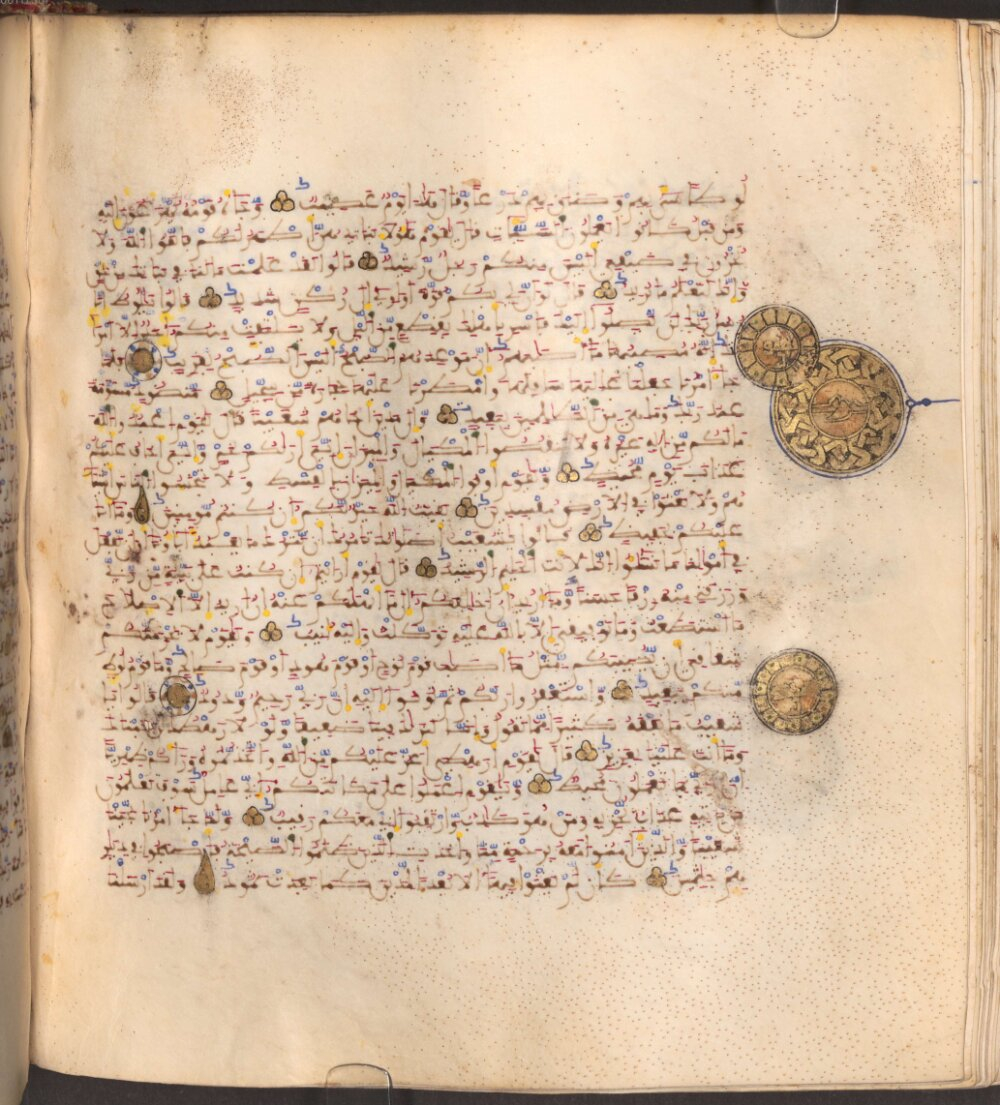 لوطا سيء بهم وضاق بهم ذرعا وقال هذا يوم عصيب وجاءه قومه يهرعون إليه
ومن قبل كانوا يعملون السيئات قال يقوم هؤلاء بناتي هن أطهر لكم فاتقوا الله ولا
تخزون في ضيفي أليس منكم رجل رشيد قالوا لقد علمت ما لنا في بناتك من حق
وإنك لتعلم ما نريد قال لو أن لي بكم قوة أو ءاوي إلى ركن شديد قالوا يلوط إنا
رسل ربك لن يصلوا إليك فاسر بأهلك بقطع من اليل ولا يلتفت منكم أحد إلا امرأ
تك إنه مصيبها ما أصابهم إن موعدهم الصبح أليس الصبح بقريب فلما
جاء أمرنا جعلنا عليها سافلها وأمطرنا عليها حجارة من سجيل منضود مسومة
عند ربك وما هي من الظلمين ببعيد وإلى مدين أخاهم شعيبا قال يقوم اعبدوا الله
ما لكم من إله غيره ولا تنقصوا المكيال والميزان إني أريكم بخير وإني أخاف عليكم
عذاب يوم محيط ويقوم أوفوا المكيال والميزان بالقسط ولا تبخسوا الناس أشيا
ءهم ولا تعثوا في الأرض مفسدين بقيت الله خير لكم إن كنتم مومنين وما أنا
عليكم بحفيظ قالوا يشعيب أصلواتك تامرك أن نترك ما يعبد ءاباؤنا أو أن نفعل
في أموالنا ما نشؤا إنك لأنت الحليم الرشيد قال يقوم أرايتم إن كنت على بينة من ربي
ورزقني منه رزقا حسنا وما أريد أن أخالفكم إلى ما أنهيكم عنه إن أريد إلا الإصلاح
ما استطعت وما توفيقي إلا بالله عليه توكلت وإليه أنيب ويقوم لا يجرمنكم
شقاقي أن يصيبكم مثل ما أصاب قوم نوح أو قوم هود أو قوم صالح وما قوم لوط
منكم ببعيد واستغفروا ربكم ثم توبوا إليه إن ربي رحيم ودود قالوا يا
شعيب ما نفقه كثيرا مما تقول وإنا لنريك فينا ضعيفا ولولا رهطك لرجمناك
وما أنت علينا بعزيز قال يقوم أرهطي أعز عليكم من الله واتخذتموه وراءكم ظهريا
إن ربي بما تعملون محيط ويقوم اعملوا على مكانتكم إني عامل سوف تعلمون
من ياتيه عذاب يخزيه ومن هو كاذب وارتقبوا إني معكم رقيب ولما جاء أمرنا نجينا
شعيبا والذين ءامنوا معه برحمة منا وأخذت الذين ظلموا الصيحة فأصبحوا في ديار
هم جاثمين كأن لم يغنوا فيها ألا بعدا لمدين كما بعدت ثمود ولقد أرسلنا